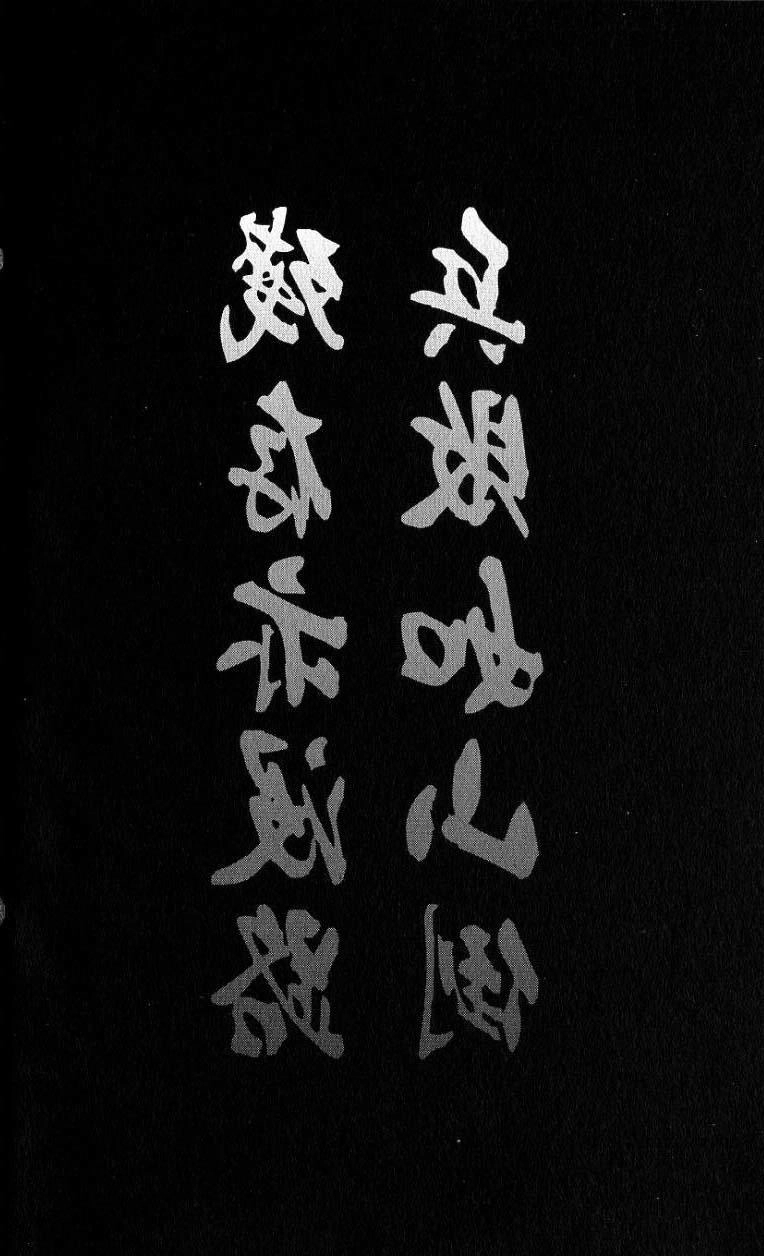 兵敗如山倒
殘存亦没路